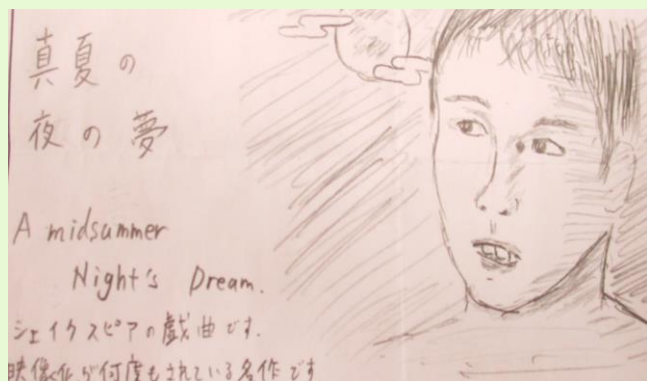 真夏の
夜の夢
A midsummer
Night's Dream.
シェイクスピアの戯曲です.
映像化が何度もされている名作です